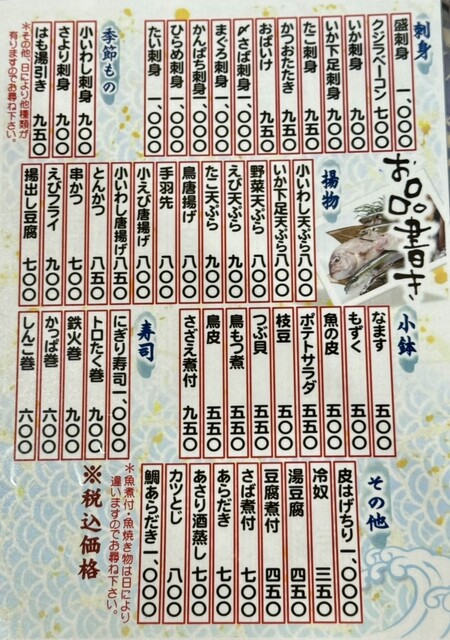 お品書き
刺身
盛刺身 一、〇〇〇
クジラベーコン 七〇〇
いか刺身 九〇〇
いか下足刺身 九〇〇
たこ刺身 九〇〇
かつおたたき 九五〇
おばいけ 九五〇
〆さば刺身 一、〇〇〇
まぐろ刺身 一、〇〇〇
かんぱち刺身 一、〇〇〇
ひらめ刺身 一、〇〇〇
たい刺身 一、〇〇〇
季節もの
小いわし刺身 九〇〇
さより刺身 九〇〇
はも湯引き 九五〇
＊その他、日により他種類が
有りますのでお尋ね下さい。
揚物
小いわし天ぷら 八〇〇
いか下足天ぷら 八〇〇
野菜天ぷら 八〇〇
えび天ぷら 九〇〇
たこ天ぷら 九〇〇
鳥唐揚げ 八〇〇
手羽先 八〇〇
小えび唐揚げ 八〇〇
小いわし唐揚げ 八五〇
とんかつ 八五〇
串かつ 七〇〇
えびフライ 九〇〇
揚出し豆腐 七〇〇
小鉢
なます 五〇〇
もずく 五〇〇
魚の皮 五五〇
ポテトサラダ 五五〇
枝豆 五〇〇
つぶ貝 五五〇
鳥もつ煮 五五〇
鳥皮 五五〇
さざえ煮付 九五〇
寿司
にぎり寿司 一、〇〇〇
トロたく巻 九〇〇
鉄火巻 九〇〇
かっぱ巻 六〇〇
しんこ巻 六〇〇
その他
皮はげちり 一、〇〇〇
冷奴 三五〇
湯豆腐 四五〇
豆腐煮付 四五〇
さば煮付 七〇〇
あらだき 七〇〇
あさり酒蒸し 七〇〇
カツとじ 八〇〇
鯛あらだき 一、〇〇〇
＊魚煮付・魚焼き物は日により
違いますのでお尋ね下さい。
※税込価格